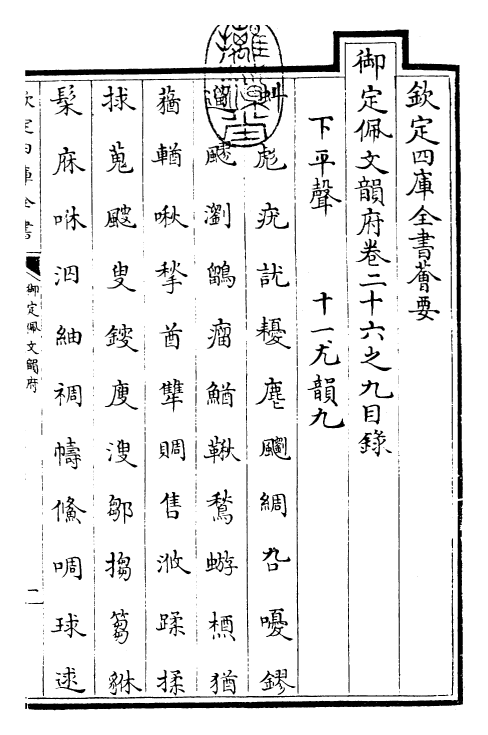 欽定四庫全書薈要
御定佩文韻府卷二十六之九目錄
下平聲 十一尤韻九
虯彪疣訧耰麀飍綢厹嚘鏐
遛飀瀏鶹瘤鰌鞦鶖蝣槱猶
蕕輶啾揫酋犨賙售浟蹂揉
捄蒐颼叟鎪廋溲鄒搊篘貅
髤庥咻泅紬裯幬鯈啁球逑
欽定四庫全書
御定佩文韻府
一